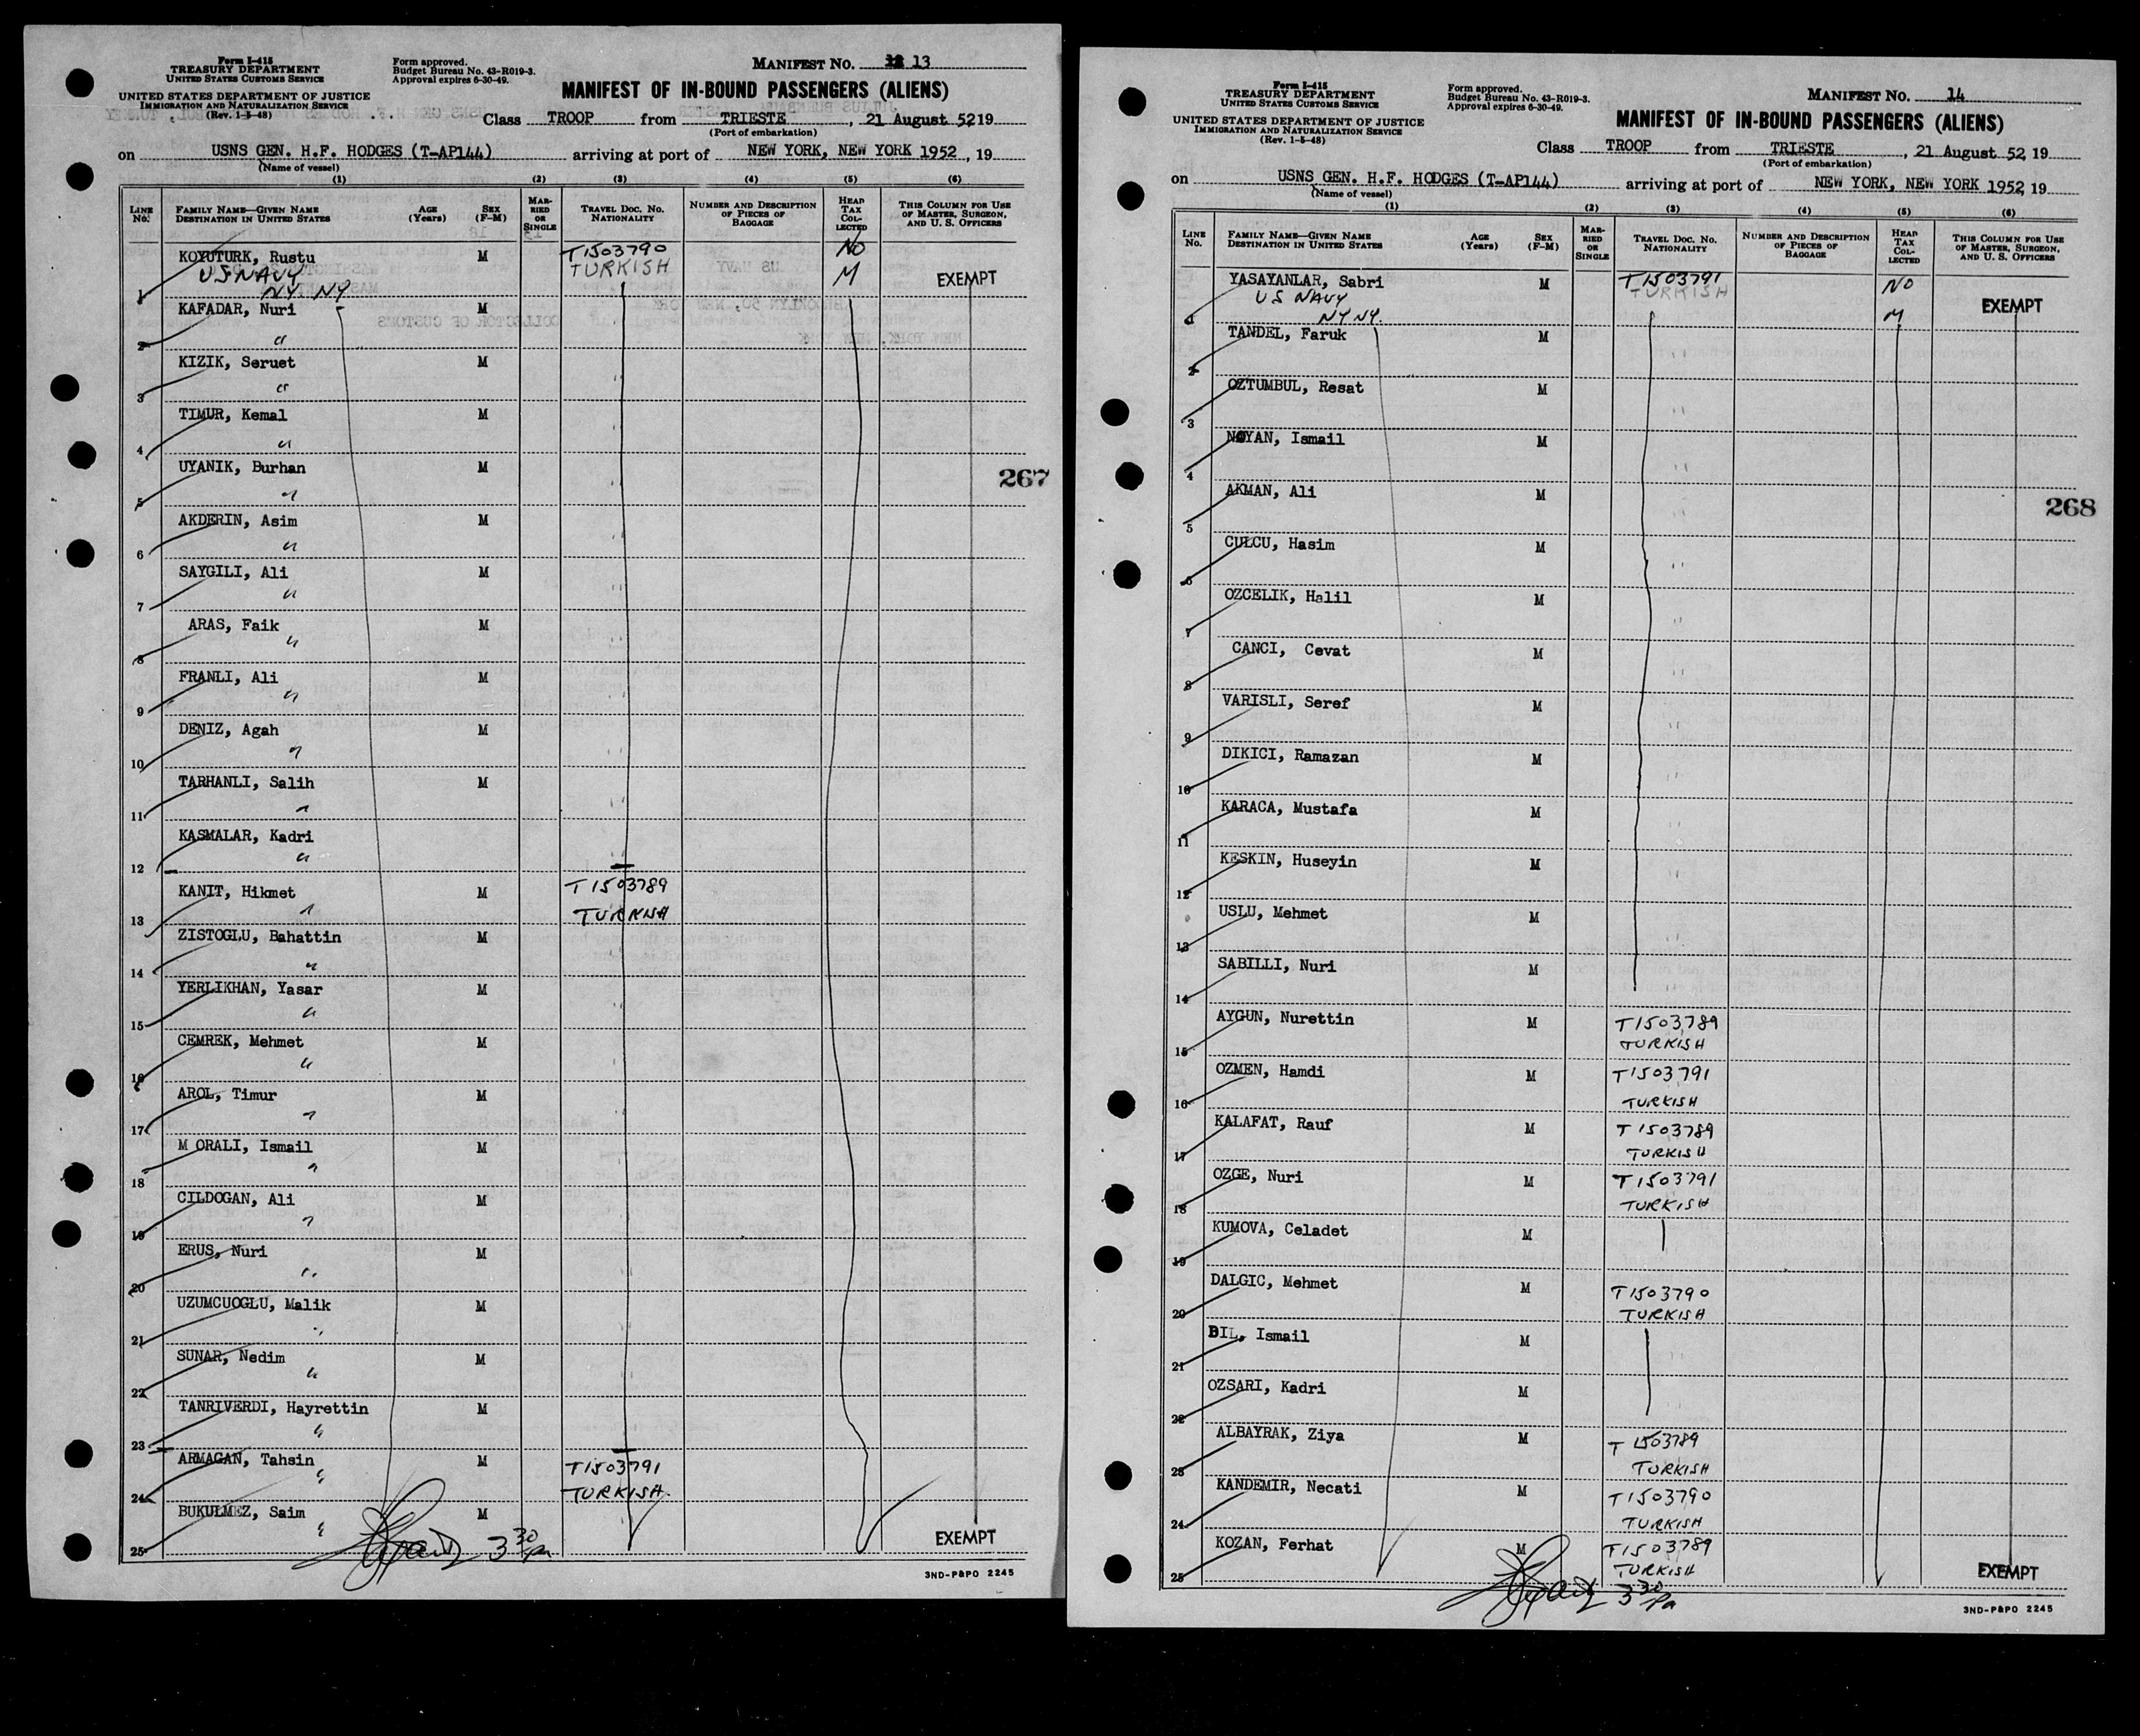 Form I-415
TREASURY DEPARTMENT
UNITED STATES CUSTOMS SERVICE
UNITED STATES DEPARTMENT OF JUSTICE
IMMIGRATION AND NATURALIZATION SERVICE
(Rev. 1-5-48)
Form approved.
Budget Bureau No. 43-R019-3.
Approval expires 6-30-49.
MANIFEST NO. 13
MANIFEST OF IN-BOUND PASSENGERS (ALIENS)
Class TROOP from TRIESTE, 21 August 5219
(Port of embarkation)
on USNS GEN. H.F. HODGES (T-AP144) arriving at port of NEW YORK, NEW YORK 1952, 19
(Name of vessel)
(1) (2) (3) (4) (5) (6)
LINE NO. FAMILY NAME—GIVEN NAME DESTINATION IN UNITED STATES AGE (Years) SEX (F-M) MARRIED OR SINGLE TRAVEL DOC. NO. NATIONALITY NUMBER AND DESCRIPTION OF PIECES OF BAGGAGE HEAD TAX COLLECTED THIS COLUMN FOR USE OF MASTER, SURGEON, AND U. S. OFFICERS
KOYUTURK, Rustu M T1503790 NO
US NAVY TURKISH M EXEMPT
1 NY NY
KAFADAR, Nuri M
2 "
KIZIK, Seruet M
3 "
TIMUR, Kemal M
4 "
UYANIK, Burhan M
5 "
267
AKDERIN, Asim M
6 "
SAYGILI, Ali M
7 "
ARAS, Faik M
8 "
FRANLI, Ali M
9 "
DENIZ, Agah M
10 "
TARHANLI, Salih M
11 "
KASMALAR, Kadri
12 "
KANIT, Hikmet M T1503789
13 " TURKISH
ZISTOGLU, Bahattin M
14 "
YERLIKHAN, Yasar M
15 "
CEMREK, Mehmet M
16 "
AROL, Timur M
17 "
M ORALI, Ismail M
18 "
CILDOGAN, Ali M
19 "
ERUS, Nuri M
20 "
UZUMCUOGLU, Malik M
21 "
SUNAR, Nedim M
22 "
TANRIVERDI, Hayrettin M
23 "
ARMAGAN, Tahsin M T1503791
24 " TURKISH.
BUKULMEZ, Saim M
25 " 3 30 pm EXEMPT
3ND-P&PO 2245
Form I-415
TREASURY DEPARTMENT
UNITED STATES CUSTOMS SERVICE
UNITED STATES DEPARTMENT OF JUSTICE
IMMIGRATION AND NATURALIZATION SERVICE
(Rev. 1-5-48)
Form approved.
Budget Bureau No. 43-R019-3.
Approval expires 6-30-49.
MANIFEST NO. 14
MANIFEST OF IN-BOUND PASSENGERS (ALIENS)
Class TROOP from TRIESTE, 21 August 52, 19
(Port of embarkation)
on USNS GEN. H.F. HODGES (T-AP144) arriving at port of NEW YORK, NEW YORK 1952, 19
(Name of vessel)
(1) (2) (3) (4) (5) (6)
LINE NO. FAMILY NAME—GIVEN NAME DESTINATION IN UNITED STATES AGE (Years) SEX (F-M) MARRIED OR SINGLE TRAVEL DOC. NO. NATIONALITY NUMBER AND DESCRIPTION OF PIECES OF BAGGAGE HEAD TAX COLLECTED THIS COLUMN FOR USE OF MASTER, SURGEON, AND U. S. OFFICERS
YASAYANLAR, Sabri M T1503791 NO
US NAVY TURKISH EXEMPT
1 NY NY. M
TANDEL, Faruk M
2
OZTUMBUL, Resat M
3
NOYAN, Ismail M
4
AKMAN, Ali M
5
268
CULCU, Hasim M
6
OZCELIK, Halil M
7
CANCI, Cevat M
8
VARISLI, Seref M
9
DIKICI, Ramazan M
10
KARACA, Mustafa M
11
KESKIN, Huseyin M
12
USLU, Mehmet M
13
SABILLI, Nuri M
14
AYGUN, Nurettin M T1503789
15 TURKISH
OZMEN, Hamdi M T1503791
16 TURKISH
KALAFAT, Rauf M T1503789
17 TURKISH
OZGE, Nuri M T1503791
18 TURKISH
KUMOVA, Celadet M
19
DALGIC, Mehmet M T1503790
20 TURKISH
BIL, Ismail M
21
OZSARI, Kadri M
22
ALBAYRAK, Ziya M T1503789
23 TURKISH
KANDEMIR, Necati M T1503790
24 TURKISH
KOZAN, Ferhat M T1503789
25 TURKISH EXEMPT
3 30 Pm
3ND-P&PO 2245